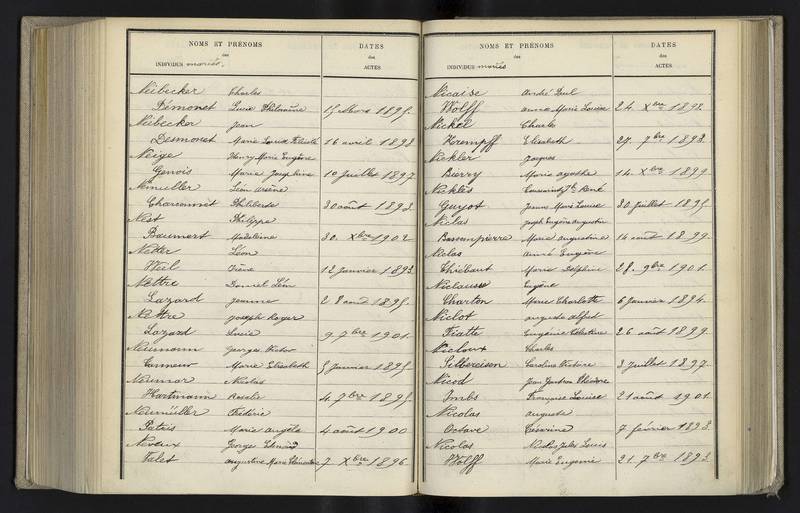 NOMS ET PRÉNOMS
des
INDIVIDUS mariés.
DATES
des
ACTES
Nebecker Charles
Démonet Lucie Philomène 15 Mars 1895.
Nebecker Jean
Desmonet Marie Louise 16 avril 1893
Neige Henry Marie Eugène
Genois Marie Joséphine 10 Juillet 1897
Nemuller Léon Arsène
Charonnet Philiberte 30 août 1893.
Nest Philippe
Baumert Madeleine 30. Xbre 1902
Netter Léon
Weil Irène 12 Janvier 1893
Nettre Daniel Léon
Lazard Jeanne 28 août 1895.
Nettre Joseph Roger
Lazard Lucie 9. 7bre 1901.
Neumann Georges Victor
Marie Elisabeth 5 Janvier 1895
Neumar Nicolas
Hartmann Rosalie 4. 7bre 1895.
Neumüller Frédéric
Patris Marie Angèle 4 août 1900
Neveux Georges Edmond
Talet Augustine Marie Clémentine 7 Xbre 1896.
NOMS ET PRÉNOMS
des
INDIVIDUS mariés
DATES
des
ACTES
Nicaise André Paul
Wolff Anna Marie Louise 24. Xbre 1892.
Nickel Charles
Krempff Elisabeth 27. 7bre 1898.
Nickler Jacques
Bierry Marie Agathe 14. Xbre 1899
Nicklès René
Guyot Jeanne Marie Louise 30 Juillet 1895
Niclas Joseph Eugène Augustin
Bassompierre Marie Augustine 14 août 1899.
Niclas Aimé Eugène
Thiébaut Marie Delphine 28. 9bre 1901.
Niclausse Eugène
Charton Marie Charlotte 6 Janvier 1894.
Niclot Auguste Alfred
Fiatte Eugénie Célestine 26 août 1899.
Nicloux Charles
Silbereisen Caroline Victoire 3 Juillet 1897.
Nicod Jean Théodore
Imbs Françoise Louise 21 août 1901.
Nicolas Auguste
Octave 7 février 1893.
Nicolas Nicolas Jules Louis
Wolff Marie Eugénie 21. 7bre 1893